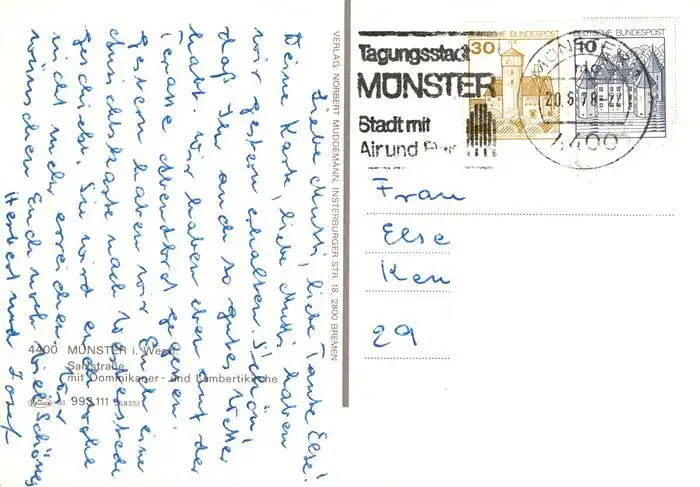 Liebe Mutti, liebe Tante Else!
Deine Karte, liebe Mutti, haben
wir gestern erhalten. Schön,
daß Ihr auch so gutes Wetter
habt. Wir haben eben auf der
Terasse Abendbrot gegessen.
Gestern haben wir Euch eine
Ansichtskarte nach Westerstede
geschickt. Sie wird euch wohl
nicht mehr erreichen. Wir
wünschen Euch noch viel Schönes
Herbert und Josef
4400 MÜNSTER i. Westf.
Salzstraße
mit Dominikaner- und Lambertikirche
993.111
VERLAG NORBERT MUDDEMANN, INSTERBURGER STR. 18, 2800 BREMEN
Tagungsstadt
MÜNSTER
Stadt mit
Air und
30
DEUTSCHE BUNDESPOST
10
DEUTSCHE BUNDESPOST
MÜNSTER
20.6.78-22
4400
Frau
Else
Ken
29